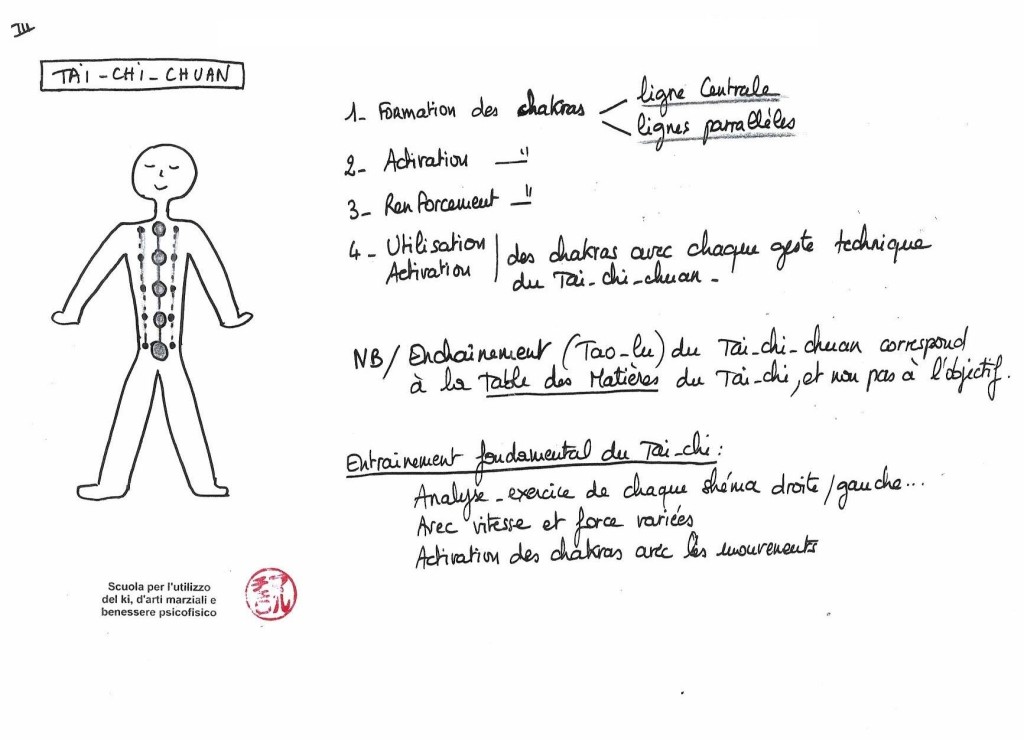 III
TAI-CHI-CHUAN
1- Formation des chakras
ligne Centrale
lignes parrallèles
2- Activation —"
3- Renforcement —"
4- Utilisation
Activation
des chakras avec chaque geste technique
du Tai-chi-chuan-
NB/ Enchainement (Tao-lu) du Tai-chi-chuan correspond
à la Table des Matières du Tai-chi, et non pas à l'objectif.
Entrainement fondamental du Tai-chi:
Analyse-exercice de chaque shéma droite/gauche...
Avec vitesse et force variées
Activation des chakras avec les mouvements
Scuola per l'utilizzo
del ki, d'arti marziali e
benessere psicofisico